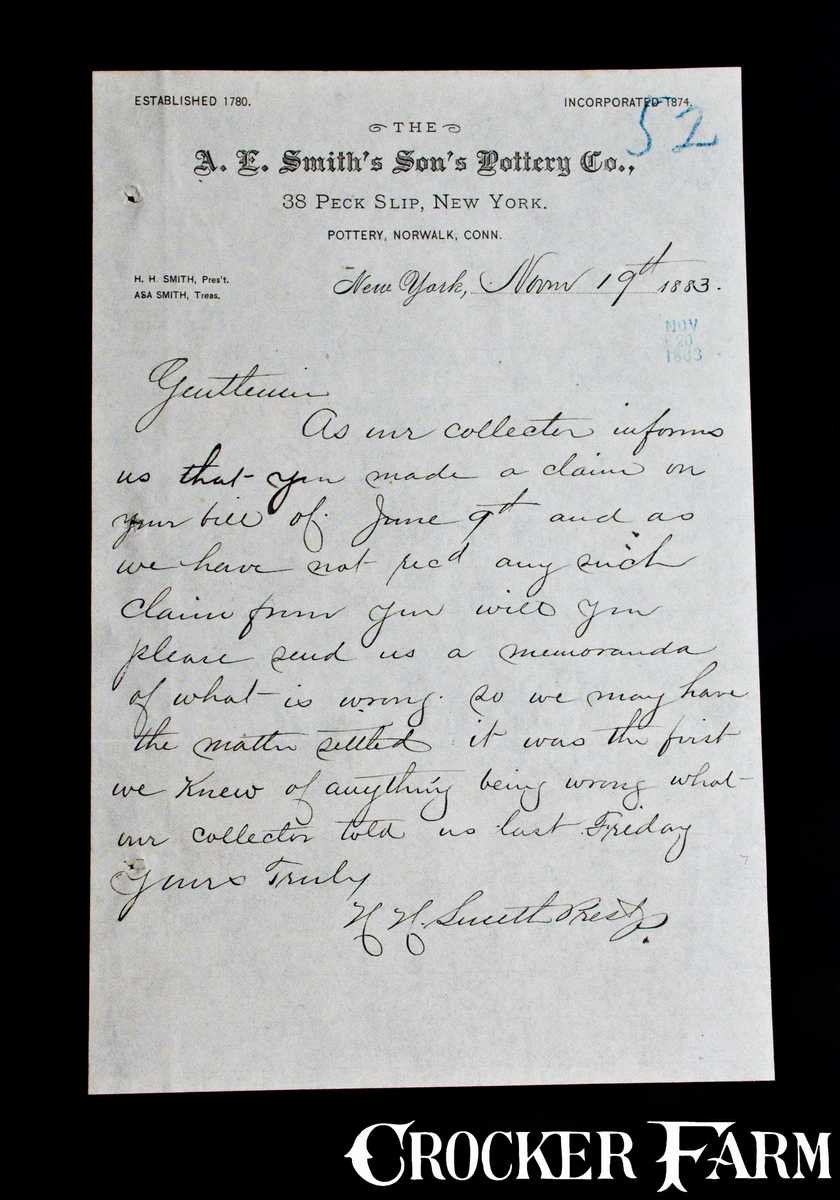 ESTABLISHED 1780.
INCORPORATED 1874.
52
THE
A. E. Smith's Son's Pottery Co.,
38 PECK SLIP, NEW YORK.
POTTERY, NORWALK, CONN.
H. H. SMITH, Pres't.
ASA SMITH, Treas.
New York, Novm 19th 1883.
NOV
20
1883
Gentlemen
As our collector informs
us that you made a claim on
your bill of June 9th and as
we have not recd any such
claim from you will you
please send us a memoranda
of what is wrong. so we may have
the matter settled it was the first
we Knew of anything being wrong what
our collector told us last Friday
Yours Truly
H. H. Smith Prest
CROCKER FARM